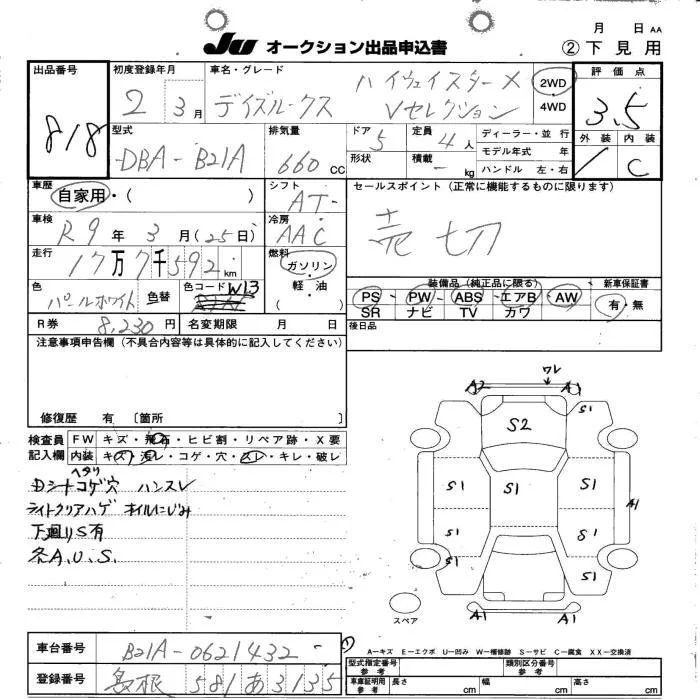 月 日 AA
JU オークション出品申込書 ② 下見用
出品番号 初度登録年月 車名・グレード 評価点
818 2年 3月 デイズルークス ハイウェイスターX Vセレクション 2WD 4WD 3.5
型式 排気量 ドア 5 定員 4人 ディーラー・並行 外装 内装
DBA-B21A 660cc 形状 積載 - kg モデル年式 年 C
ハンドル 左・右
車歴 シフト セールスポイント（正常に機能するものに限ります）
自家用・（ ） AT-
車検 冷房 売切
R9年 3月（25日） AAC
走行 燃料
17万7千592km ガソリン
軽油
（ ）
色 パールホワイト 色替 色コード W13
装備品（純正品に限る） 新車保証書
PS・PW・ABS・エアB・AW 有・無
SR ナビ TV カワ
R券 8,230円 名変期限 月 日 後日品
注意事項申告欄（不具合内容等は具体的に記入してください）
修復歴 有 〔箇所 〕
検査員記入欄 FW キズ・飛石・ヒビ割・リペア跡・X要
内装 キズ・汚レ・コゲ・穴・スレ・キレ・破レ
ヘタリ
Dシートコゲ穴 ハンスレ
ライトクリアハゲ オイルにじみ
下廻りS有
各A.U.S.
ワレ
A2 A1
S1
S2
S1 S1 S1
A1
S1 S1
S1 S1
A1 A1
スペア
A−キズ E−エクボ U−凹み W−補修跡 S−サビ C−腐食 XX−交換済
車台番号 B21A-0621432
登録番号 島根 581 あ 3135
型式指定番号 参考 類別区分番号 参考
車庫証明用 参考 長さ cm 幅 cm 高さ cm